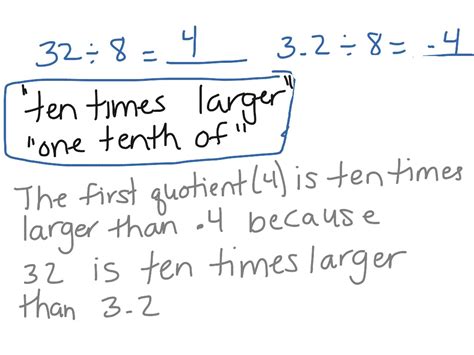 32 ÷ 8 = 4 3.2 ÷ 8 = .4
"ten times larger"
"one tenth of"
The first quotient (4) is ten times
larger than .4 because
32 is ten times larger
than 3.2